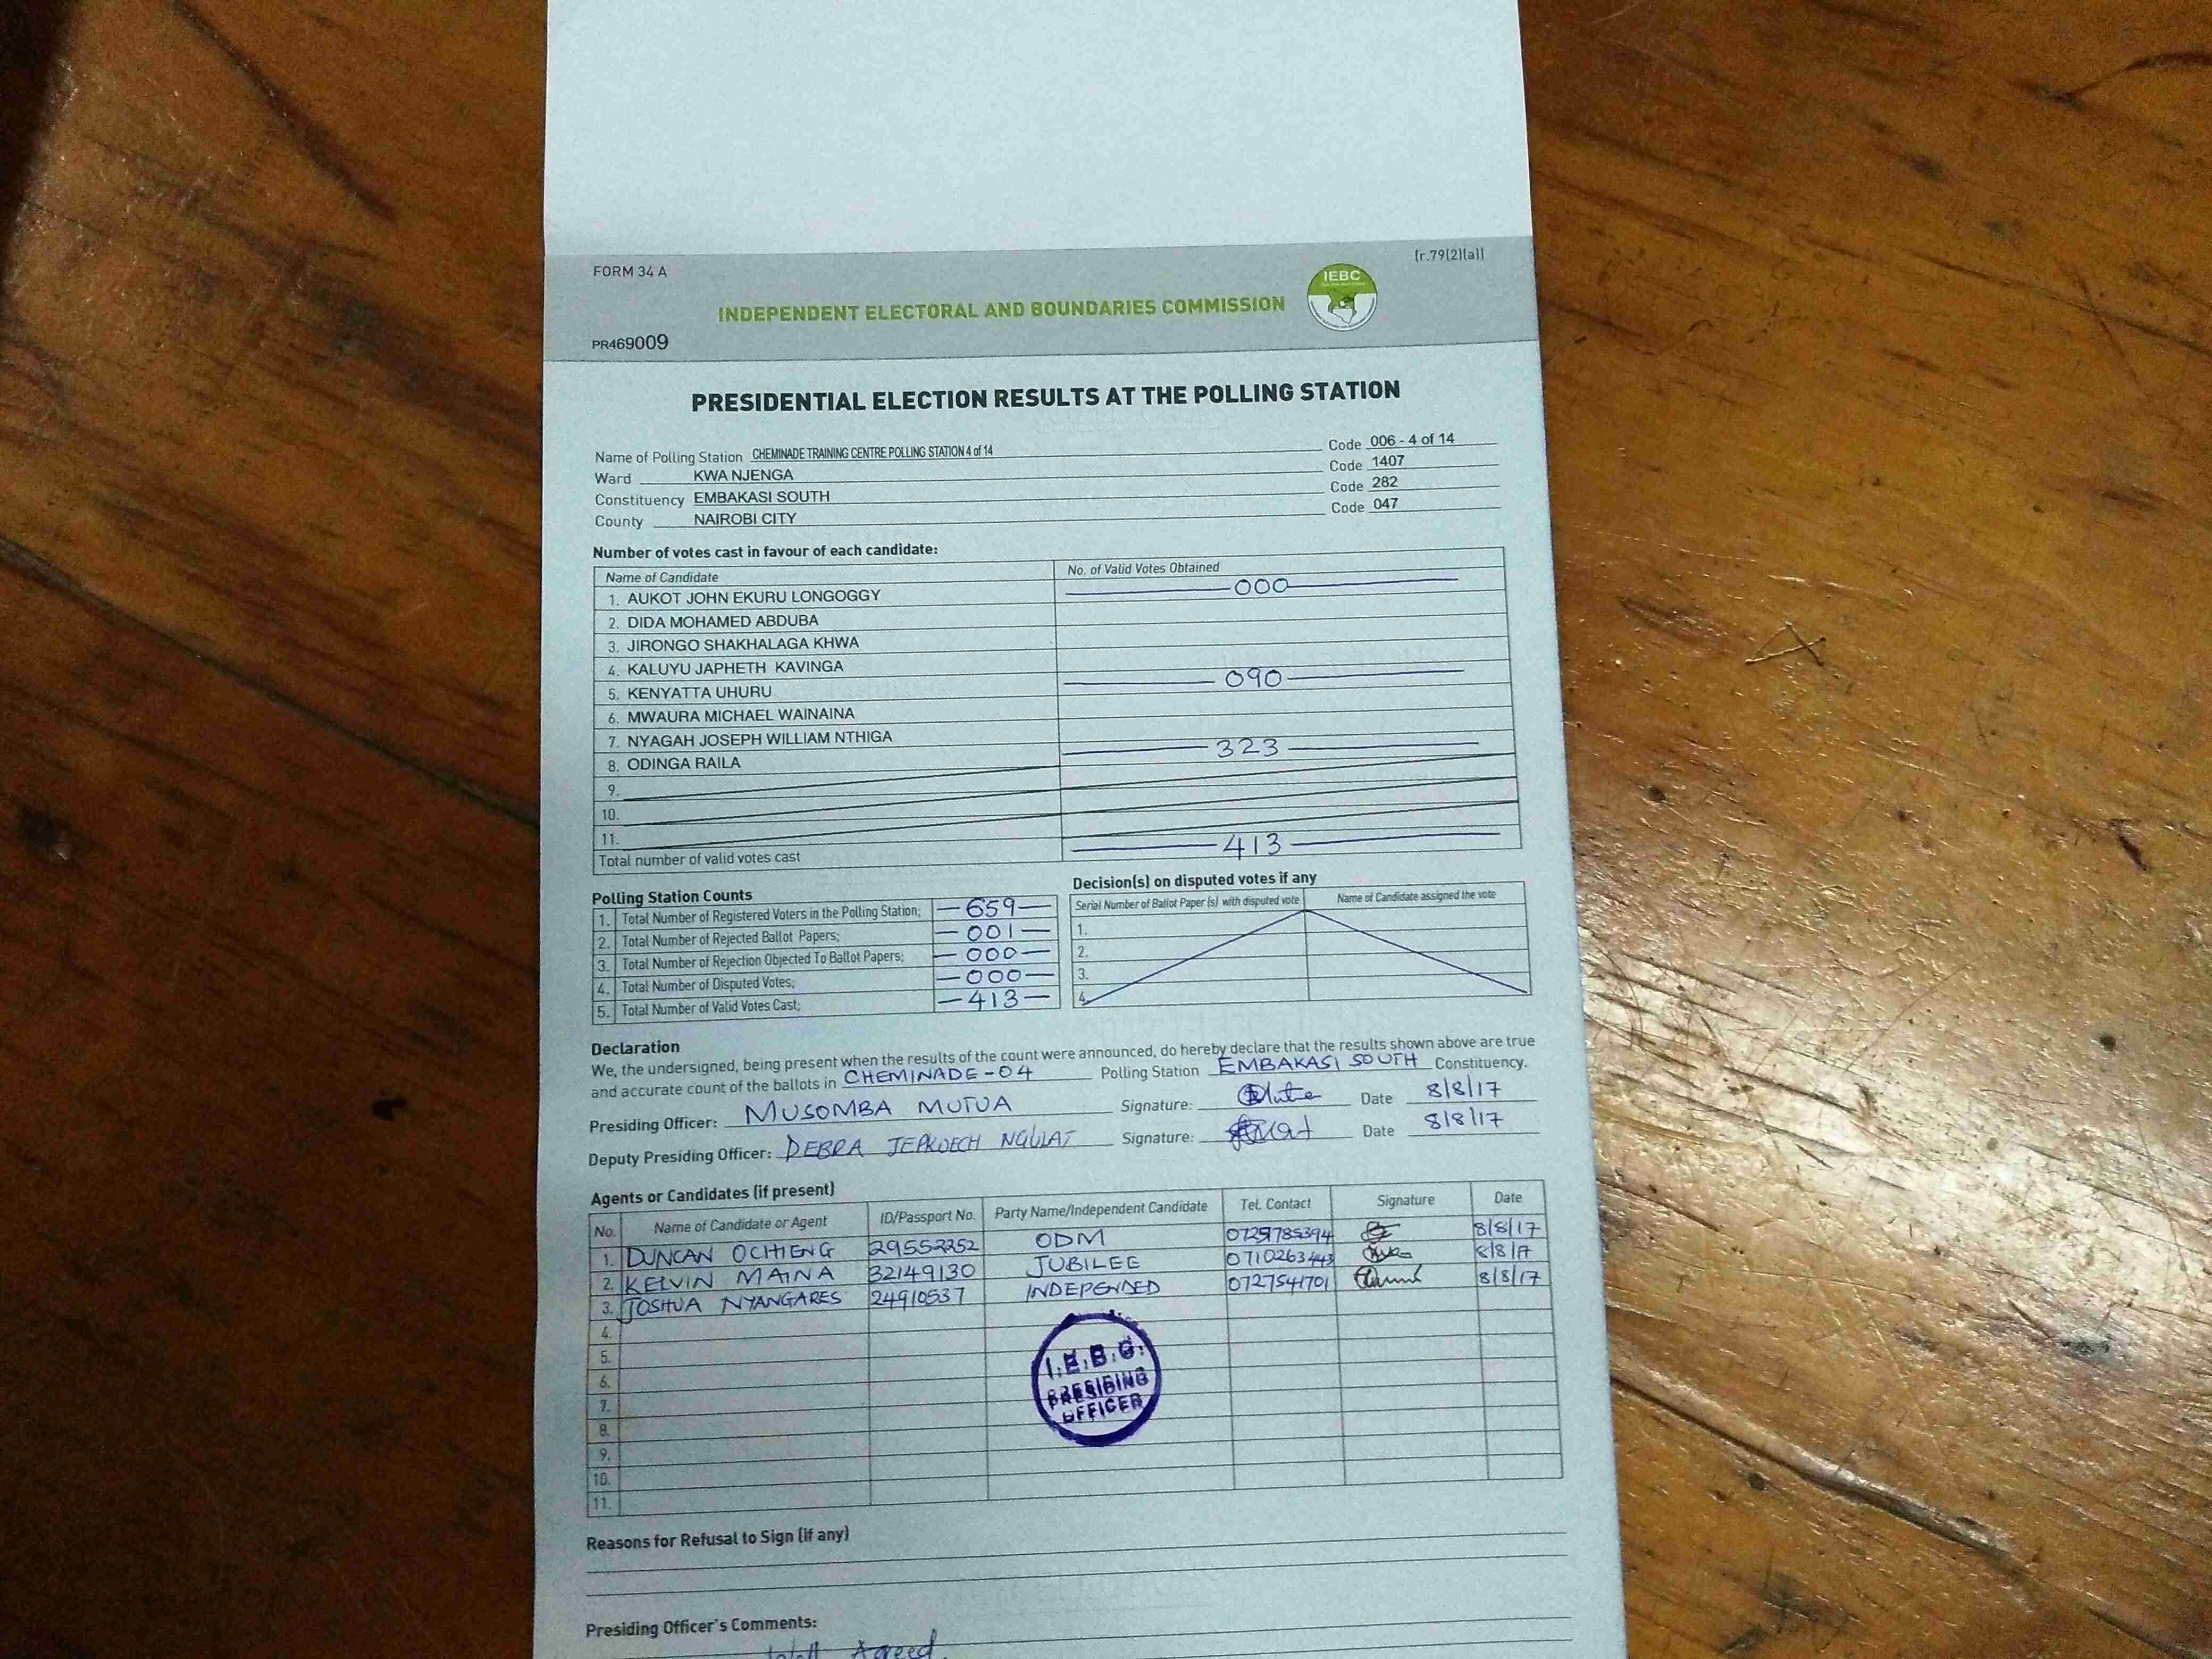 FORM 34 A
[r.79(2)(a)]
IEBC
INDEPENDENT ELECTORAL AND BOUNDARIES COMMISSION
PR469009
PRESIDENTIAL ELECTION RESULTS AT THE POLLING STATION
Name of Polling Station CHEMINADE TRAINING CENTRE POLLING STATION 4 of 14 Code 006 - 4 of 14
Ward KWA NJENGA Code 1407
Constituency EMBAKASI SOUTH Code 282
County NAIROBI CITY Code 047
Number of votes cast in favour of each candidate:
Name of Candidate No. of Valid Votes Obtained
1. AUKOT JOHN EKURU LONGOGGY 000
2. DIDA MOHAMED ABDUBA
3. JIRONGO SHAKHALAGA KHWA
4. KALUYU JAPHETH KAVINGA
5. KENYATTA UHURU 090
6. MWAURA MICHAEL WAINAINA
7. NYAGAH JOSEPH WILLIAM NTHIGA
8. ODINGA RAILA 323
9.
10.
11.
Total number of valid votes cast 413
Polling Station Counts
1. Total Number of Registered Voters in the Polling Station; 659
2. Total Number of Rejected Ballot Papers; 001
3. Total Number of Rejection Objected To Ballot Papers; 000
4. Total Number of Disputed Votes; 000
5. Total Number of Valid Votes Cast; 413
Decision(s) on disputed votes if any
Serial Number of Ballot Paper (s) with disputed vote Name of Candidate assigned the vote
1.
2.
3.
4.
Declaration
We, the undersigned, being present when the results of the count were announced, do hereby declare that the results shown above are true
and accurate count of the ballots in CHEMINADE-04 Polling Station EMBAKASI SOUTH Constituency.
Presiding Officer: MUSOMBA MUTUA Signature: Date 8/8/17
Deputy Presiding Officer: DEBRA JEPKOECH NGULAT Signature: Date 8/8/17
Agents or Candidates (if present)
No. Name of Candidate or Agent ID/Passport No. Party Name/Independent Candidate Tel. Contact Signature Date
1. DUNCAN OCHIENG 29552252 ODM 8/8/17
2. KELVIN MAINA 32149130 JUBILEE 0710263443 8/8/17
3. JOSHUA NYANGARES 24910537 INDEPENDED 0727541701 8/8/17
4.
5.
6.
7.
8.
9.
10.
11.
I.E.B.C.
PRESIDING
OFFICER
Reasons for Refusal to Sign (if any)
Presiding Officer's Comments:
Agreed